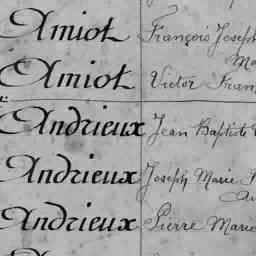 Amiot François Joseph
Ma
Amiot Victor Fran
Andrieux Jean Baptiste
Andrieux Joseph Marie
Andrieux Pierre Marie